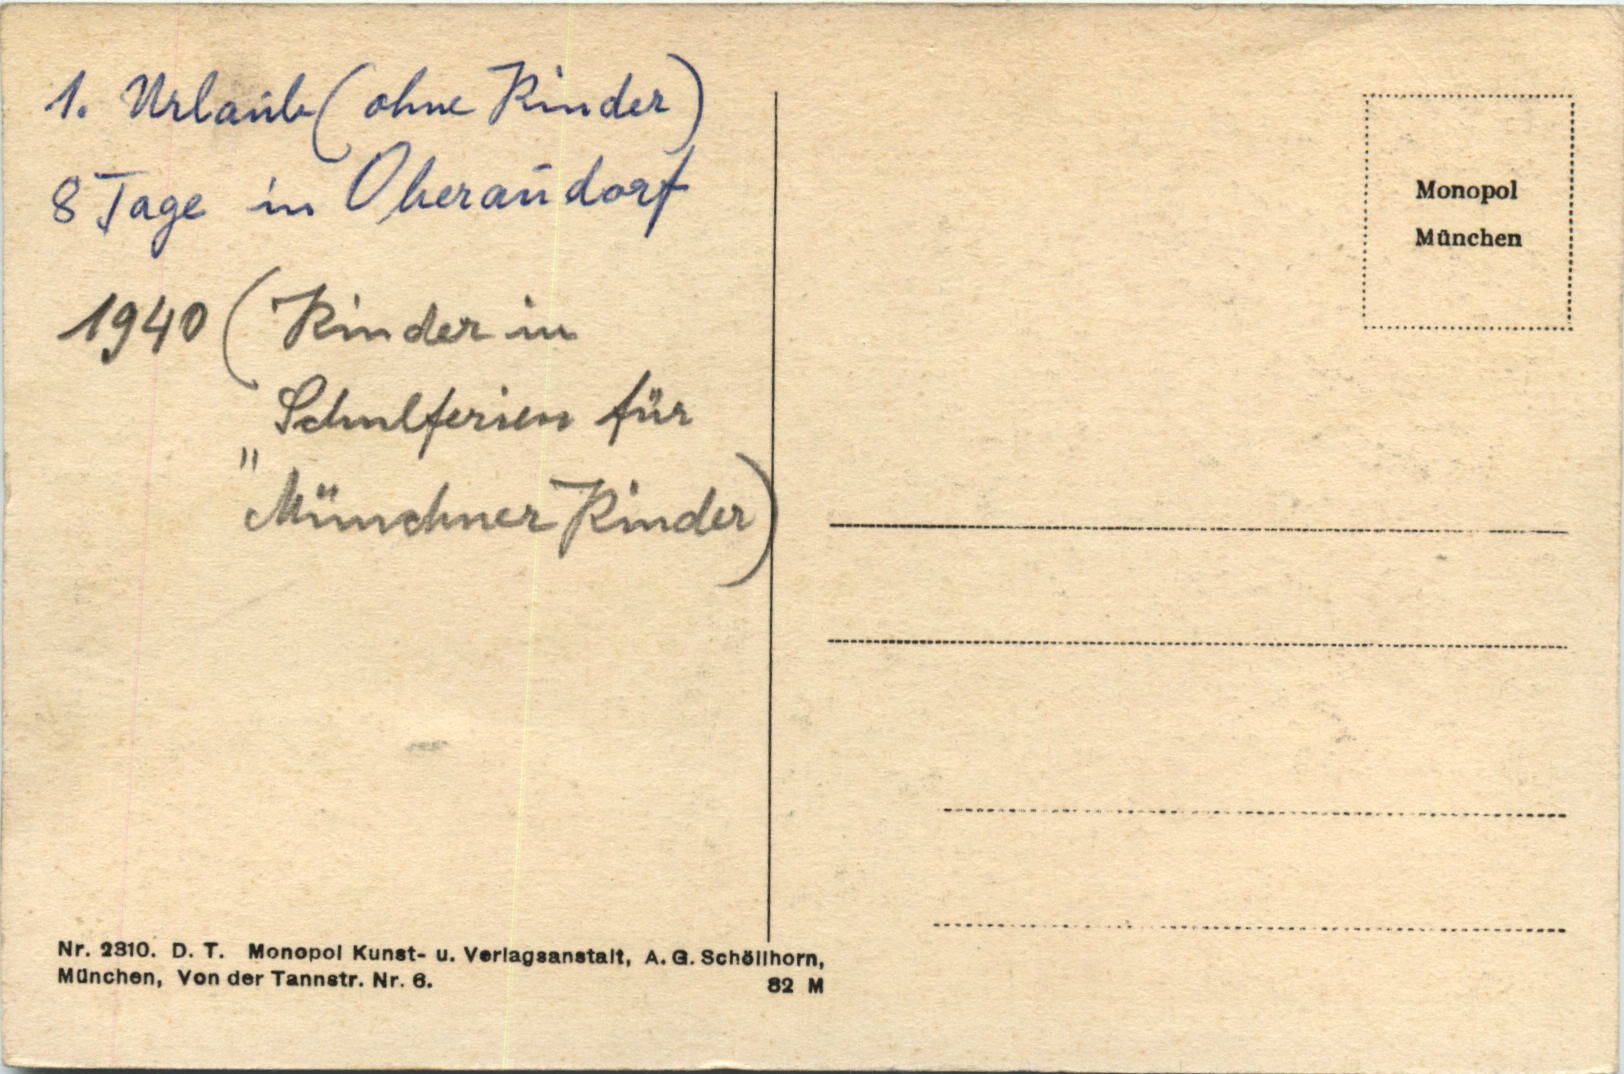 1. Urlaub (ohne Kinder)
8 Tage in Oberaudorf
1940 (Kinder in
Schulferien für
"Münchner Kinder)
Monopol
München
Nr. 2310. D. T. Monopol Kunst- u. Verlagsanstalt, A. G. Schöllhorn,
München, Von der Tannstr. Nr. 6.
82 M